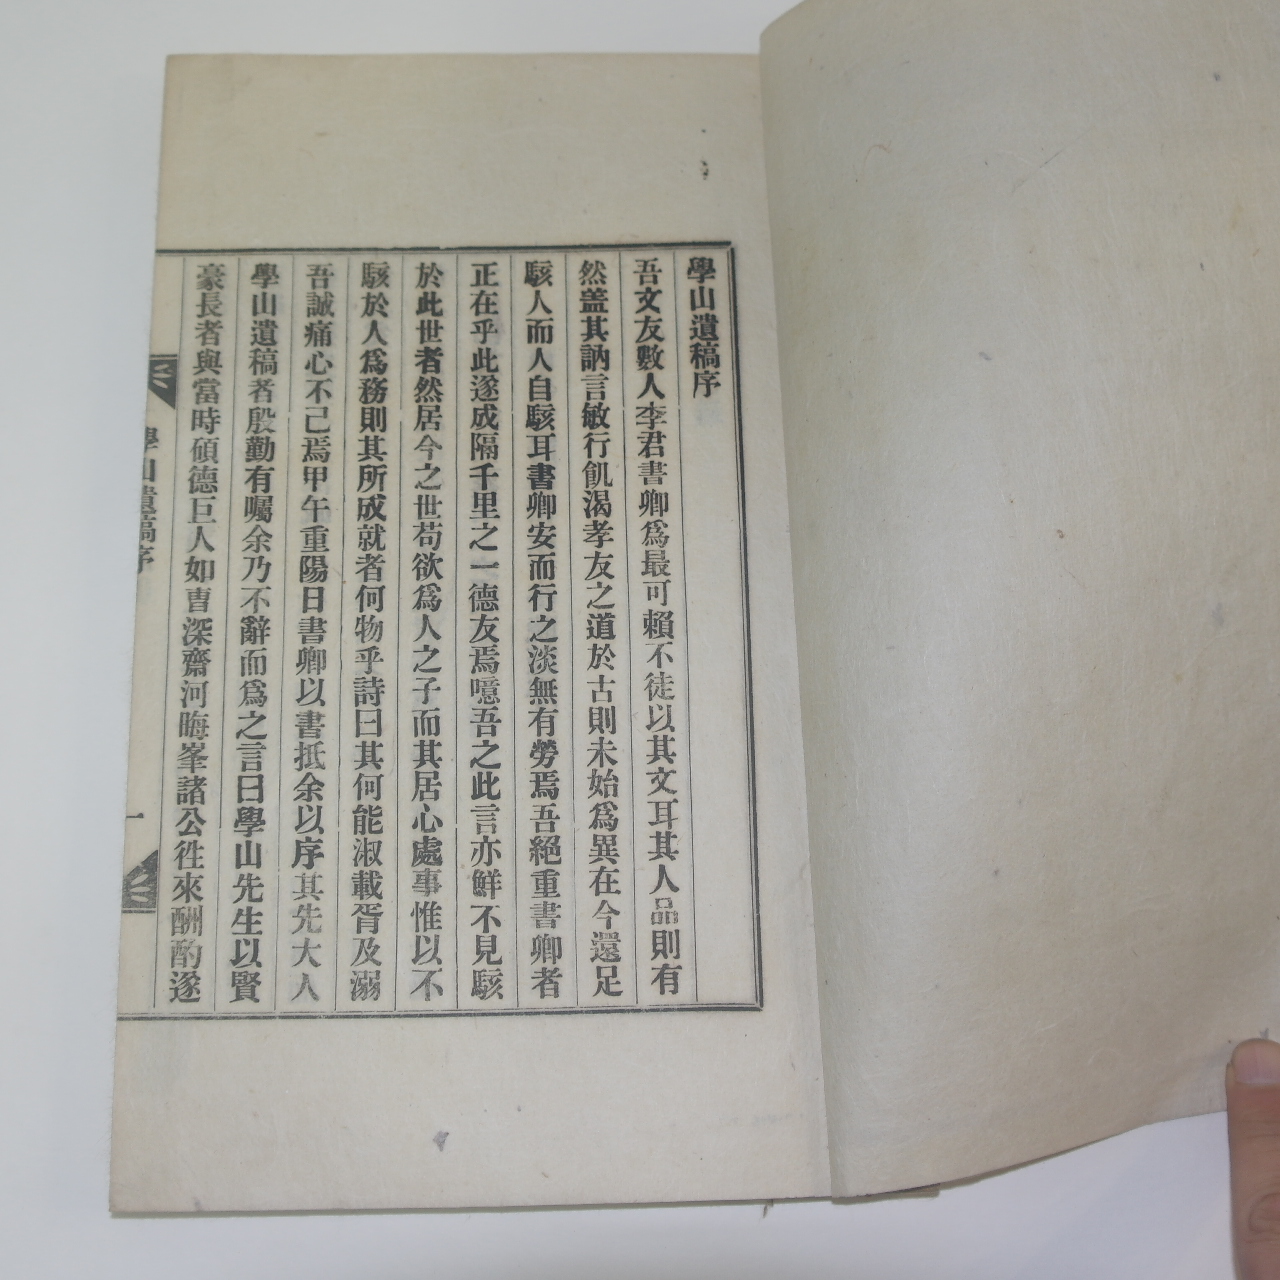 學山遺稿序
吾文友數人李君書卿爲最可賴不徒以其文耳其人品則有
然盖其訥言敏行飢渴孝友之道於古則未始爲異在今還足
駭人而人自駭耳書卿安而行之淡無有勞焉吾絕重書卿者
正在乎此遂成隔千里之一德友焉噫吾之此言亦鮮不見駭
於此世者然居今之世苟欲爲人之子而其居心處事惟以不
駭於人爲務則其所成就者何物乎詩曰其何能淑載胥及溺
吾誠痛心不已焉甲午重陽日書卿以書抵余以序其先大人
學山遺稿者殷勤有囑余乃不辭而爲之言曰學山先生以賢
豪長者與當時碩德巨人如曺深齋河晦峯諸公徃來酬酌遂
學山遺稿序
一